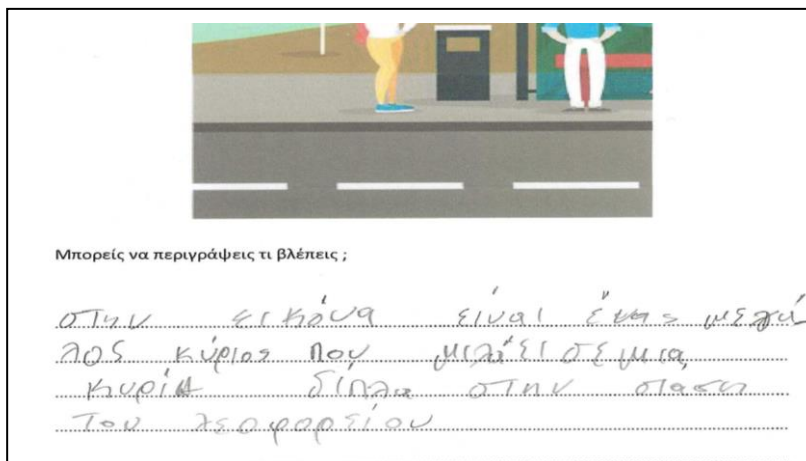 Μπορείς να περιγράψεις τι βλέπεις ;
στην εικόνα είναι ένας μεγά
λος κύριος πού μιλάει σέ μια
κυρία δίπλα στην σταση
του λεοφορείου